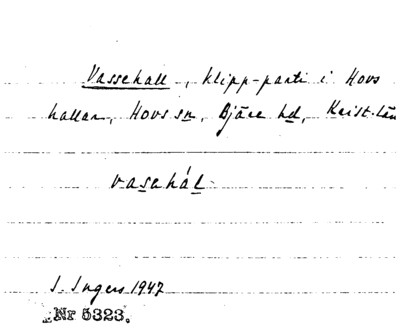 Vassehall, klipp-parti i Hovs
hallar, Hovs sn, Bjäre hd, Krist. län
vasahál
I. Ingers 1947
Nr 5323.